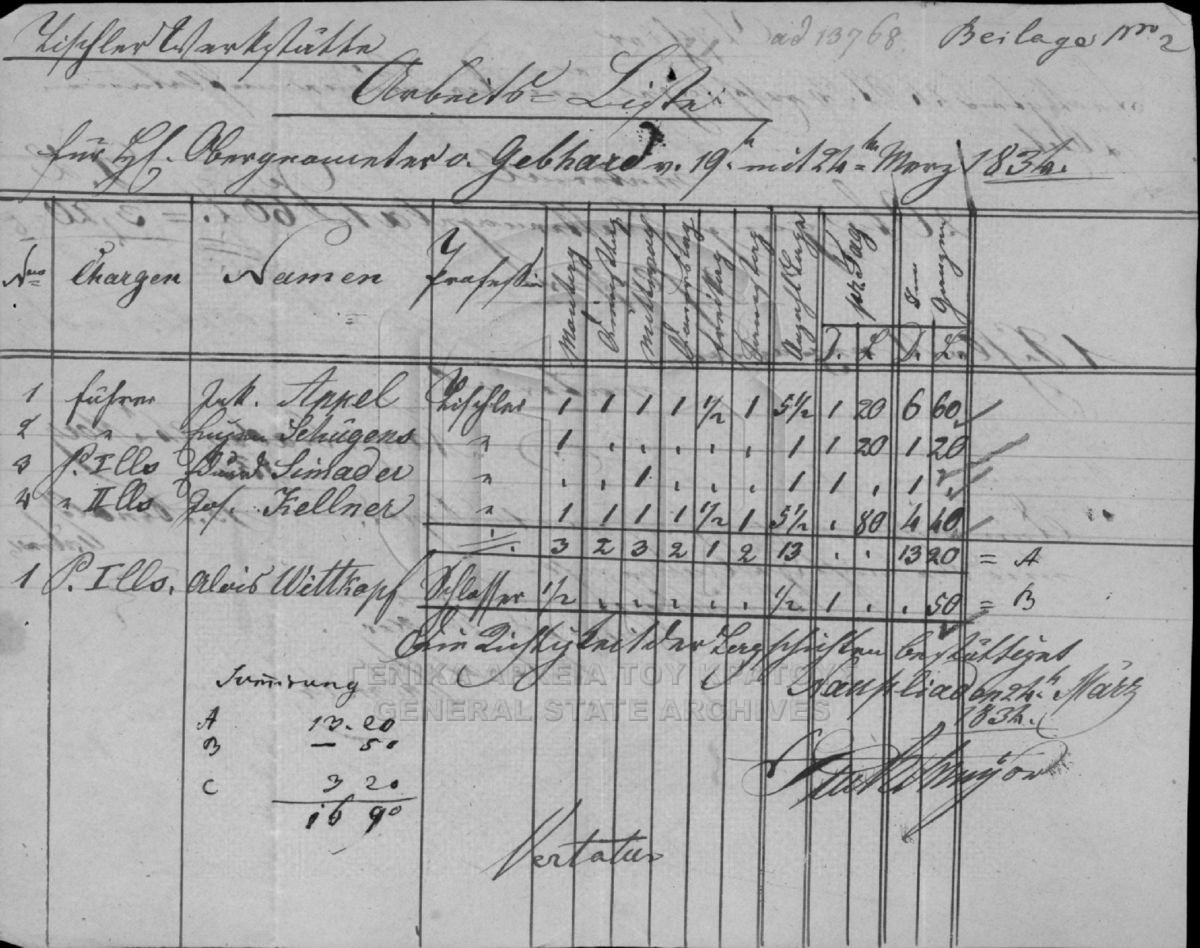 Tischler Werkstätte
ad 13768 Beilage Nro 2
Arbeits = Liste
für H. Obergeometer v. Gebhard v. 19. mit 24ten März 1834.
Nro Chargen Namen Profession Montag Dienstag Mittwoch Donnerstag Freitag Samstag pr Tag Im Ganzen
D. L. D. L.
1 führer Jak. Appel Tischler 1 1 1 1 1/2 1 5 1/2 1 20 6 60
2 " Schügens " 1 . . . . . 1 1 20 1 20
3 P. Ills Simader " . . 1 . . . 1 1 . 1 .
4 " IIls Jos. Kellner " 1 1 1 1 1/2 1 5 1/2 . 80 4 40
3 2 3 2 1 2 13 . . 13 20 = A
1 P. Ills. Alois Wittkopf Schlosser 1/2 . . . . . 1/2 1 . . 50 = B
Die Richtigkeit der Tagschichten bestättiget
Nauplia den 24ten März
1834.
Summirung
A 13. 20
B — 50
C 3 20
16 90
Vertatur
ΓΕΝΙΚΑ ΑΡΧΕΙΑ ΤΟΥ ΚΡΑΤΟΥΣ
GENERAL STATE ARCHIVES